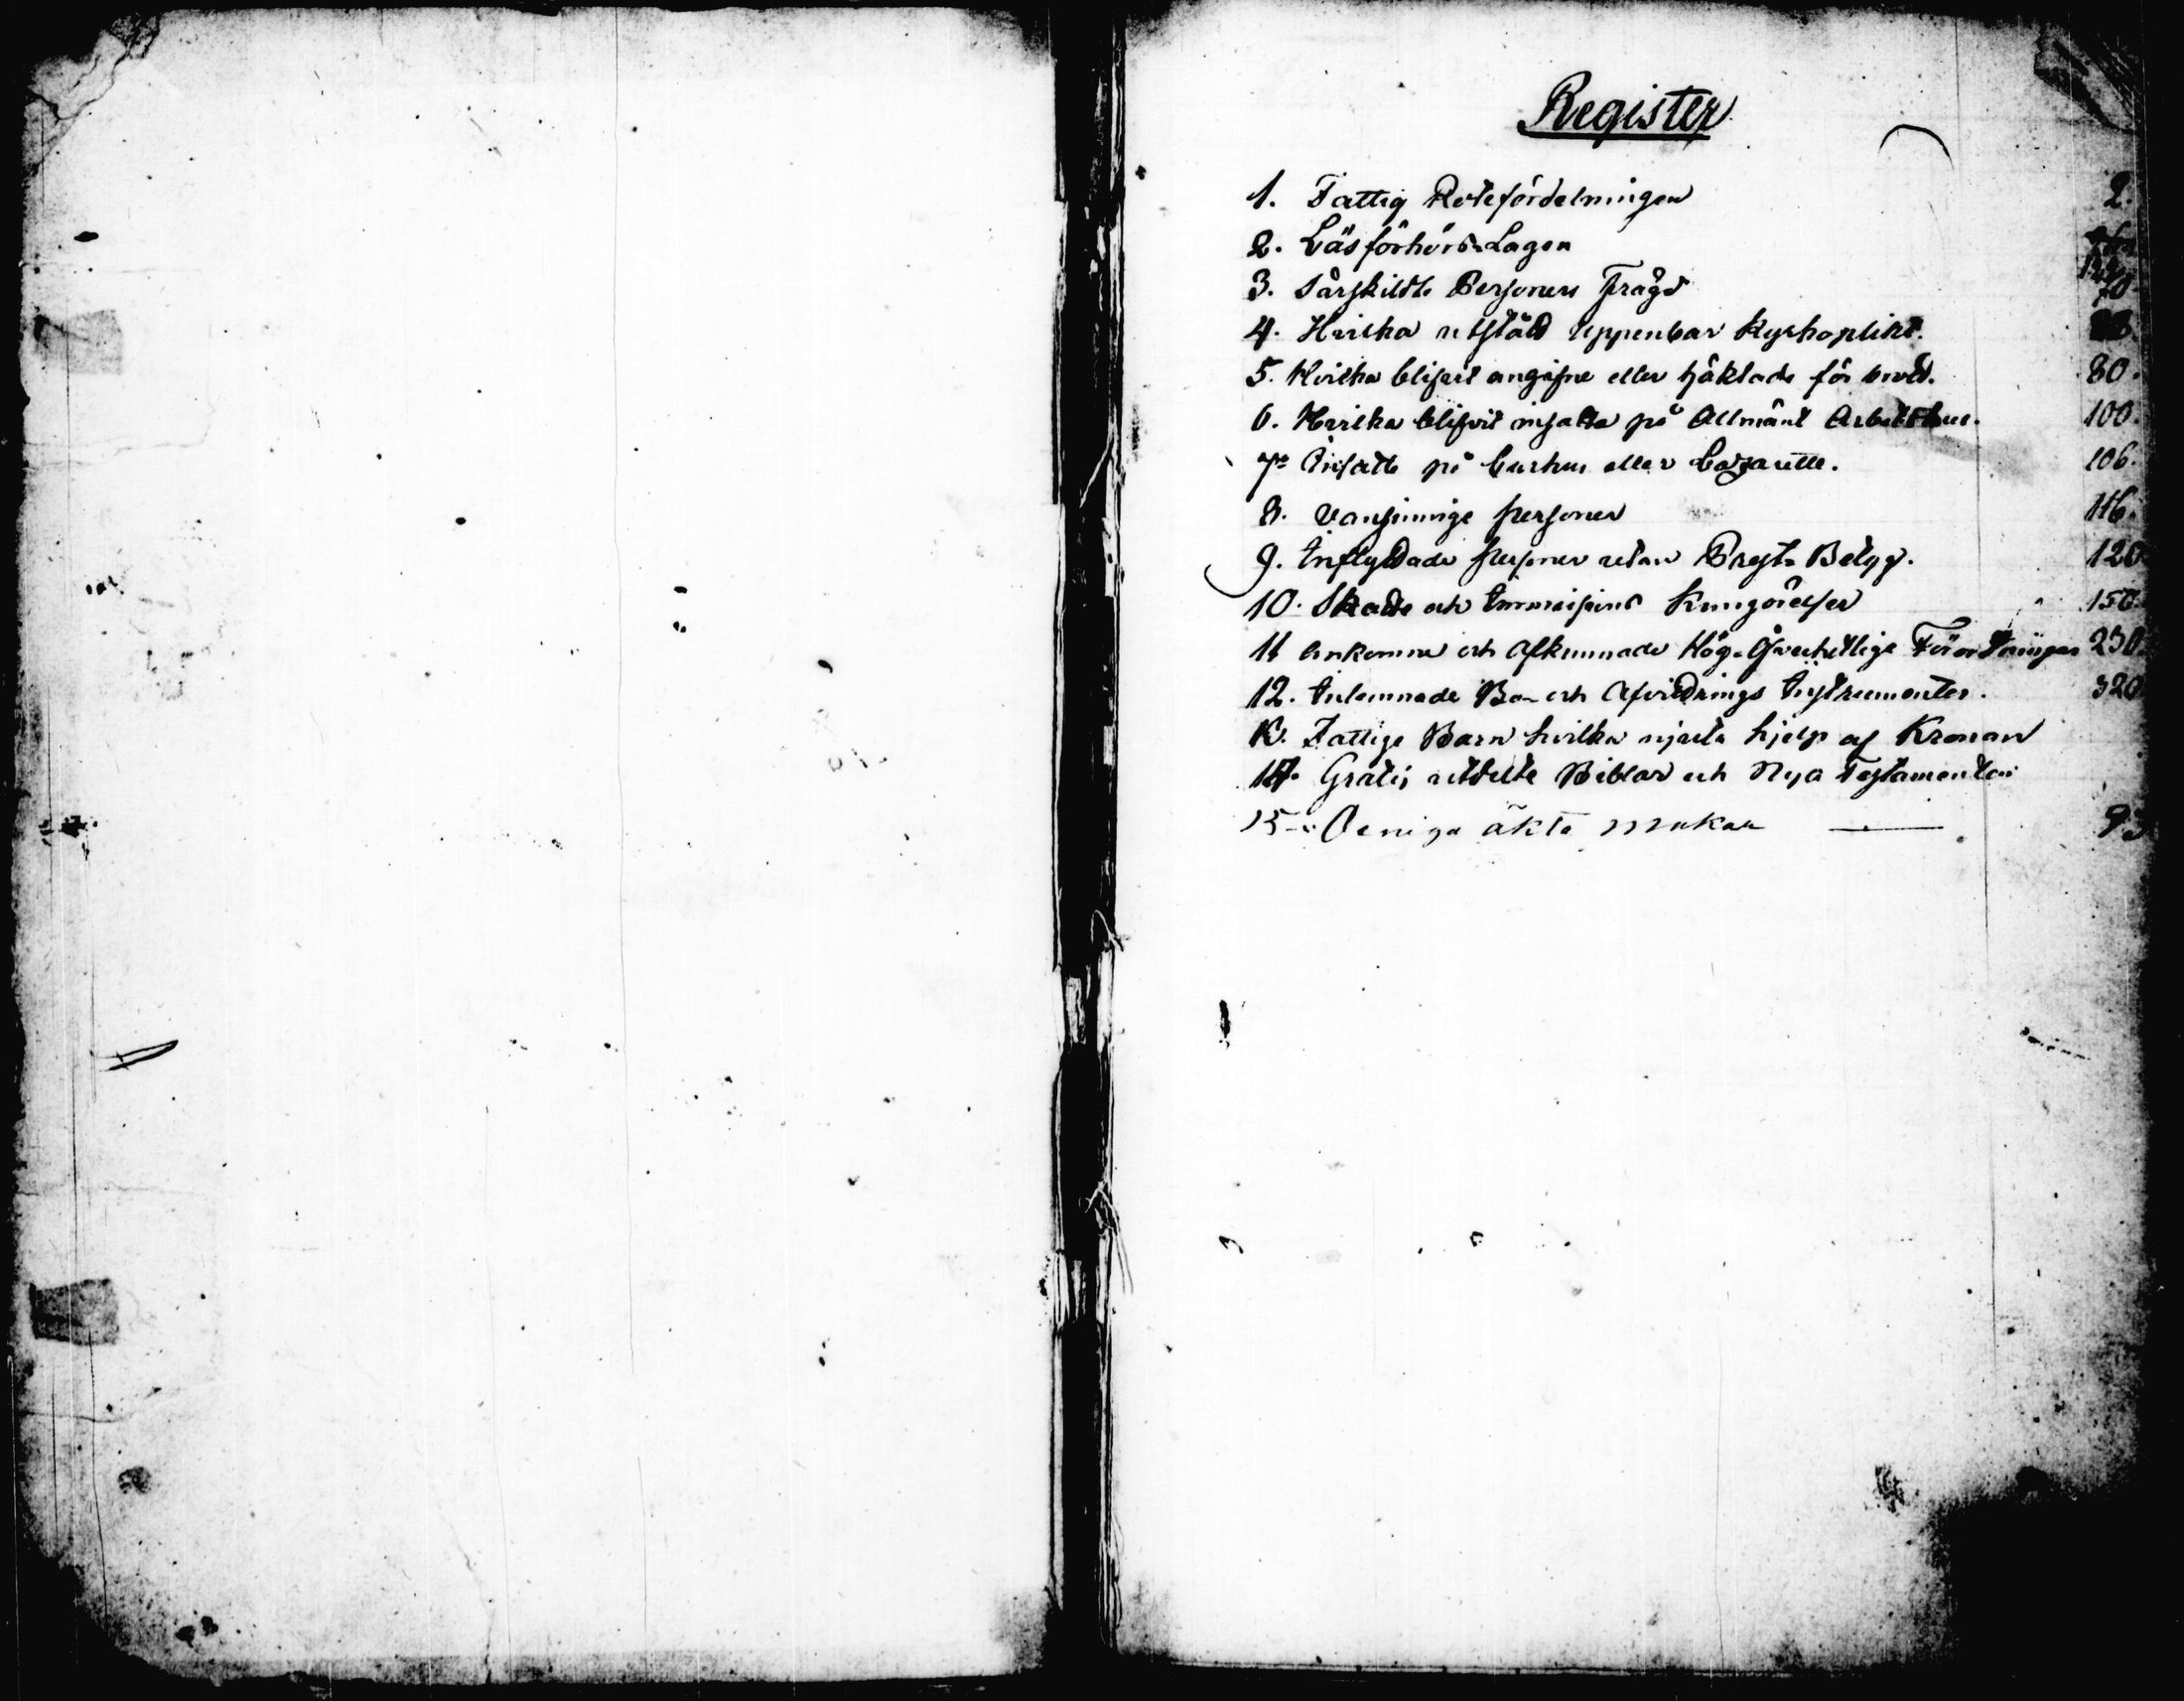 Register
1. Fattig Rotefördelningen 2.
2. Läsförhörs-Lagen
3. Särskildte Personers Frägd 70
4. Hvilka utstådt uppenbar Kyrkoplikt.
5. Hvilka blifvit angifne eller häktade för brott. 80.
6. Hvilka blifvit insatte på Allmänt Arbetshus. 100.
7. Insatte på Curhus eller Lazarette. 106.
8. Vansinnige personer 116.
9. Inflyttade personer utan Prest-Betyg. 120
10. Skatte och Kungörelser 150.
11 Ankomne och afkunnade Hög-Öfverhetliga Förordningar 230.
12. Inlemnade Bo- och Afvittrings Instrumenter. 320
13. Fattige Barn hvilka njuta hjelp af Kronan
14. Gratis utdelte Biblar och Nya Testamenten
15- Oeniga äkta makar 93